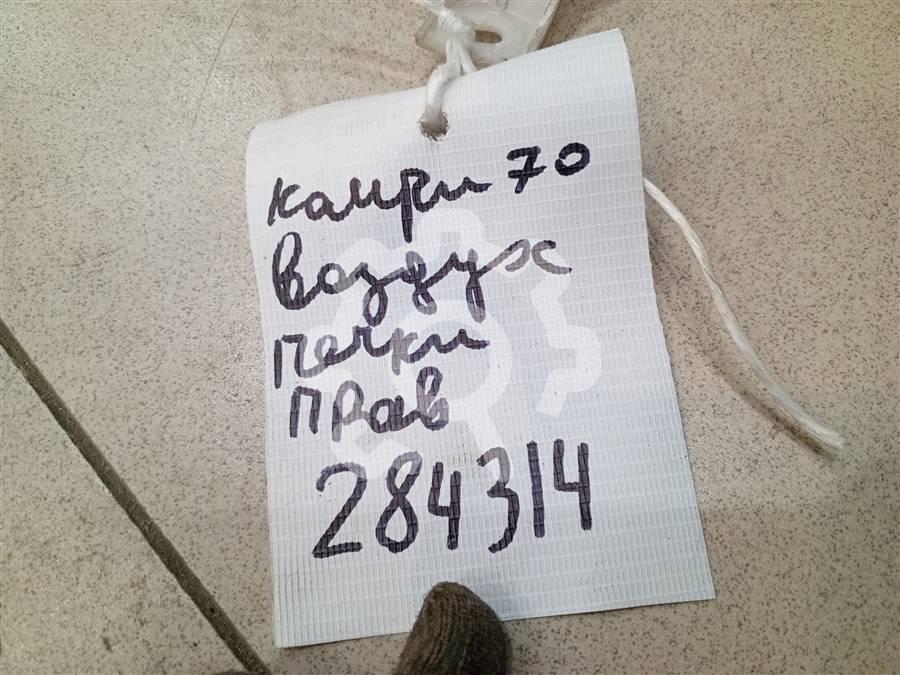 камри 70
Воздух
печки
прав
284314